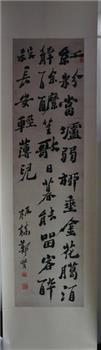 紅粉當壚弱柳垂金花臘酒
解酴醾笙歌日暮能留客醉
殺長安輕薄兒
板橋鄭燮